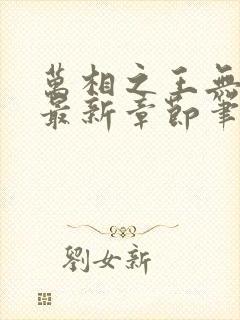 萬相之王無
最新章節筆
劉女新